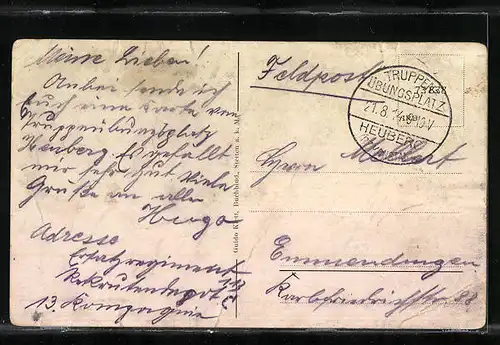 Meine Lieben!
Anbei sende ich
Euch eine Karte vom
Truppenübungsplatz
Heuberg. Es gefällt
mir sehr gut. Viele
Grüße an alle
Hugo
Adresse
Ersatzregiment
Rekrutendepot
13. Kompagnie
Guido Kiett, Buchbind, Stetten a. k. M.
Feldpost
TRUPPEN
ÜBUNGSPLATZ
21.8. 9-10V
HEUBERG
Herrn
Emmendingen
Karlfriedrichstr. 88